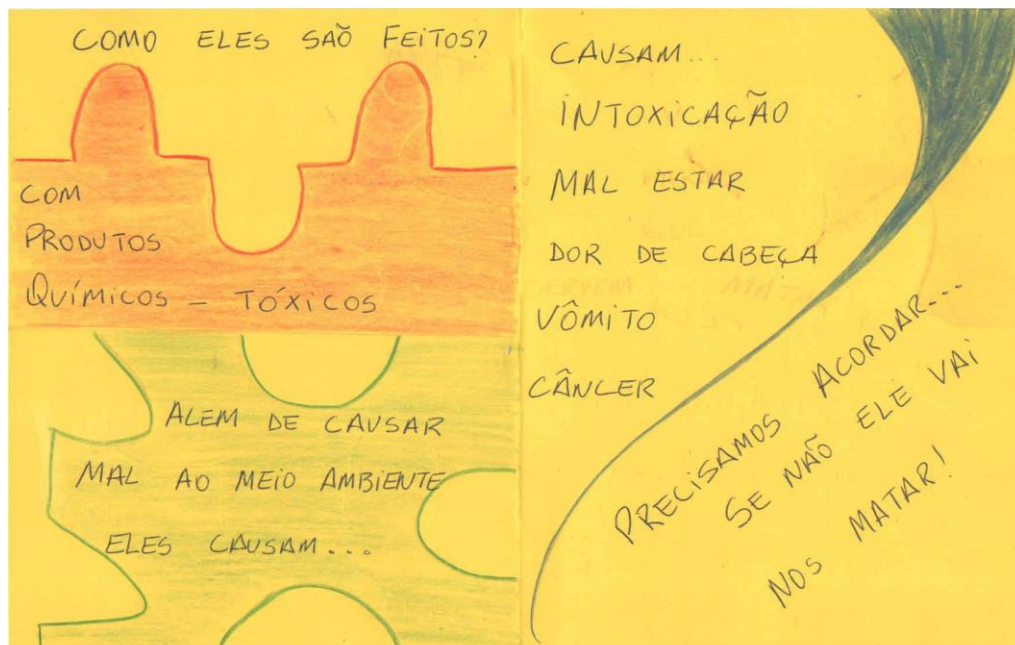 COMO ELES SAÕ FEITOS?
COM
PRODUTOS
QUÍMICOS - TÓXICOS
ALEM DE CAUSAR
MAL AO MEIO AMBIENTE
ELES CAUSAM...
CAUSAM...
INTOXICAÇÃO
MAL ESTAR
DOR DE CABEÇA
VÔMITO
CÂNCER
PRECISAMOS ACORDAR...
SE NÃO ELE VAI
NOS MATAR!